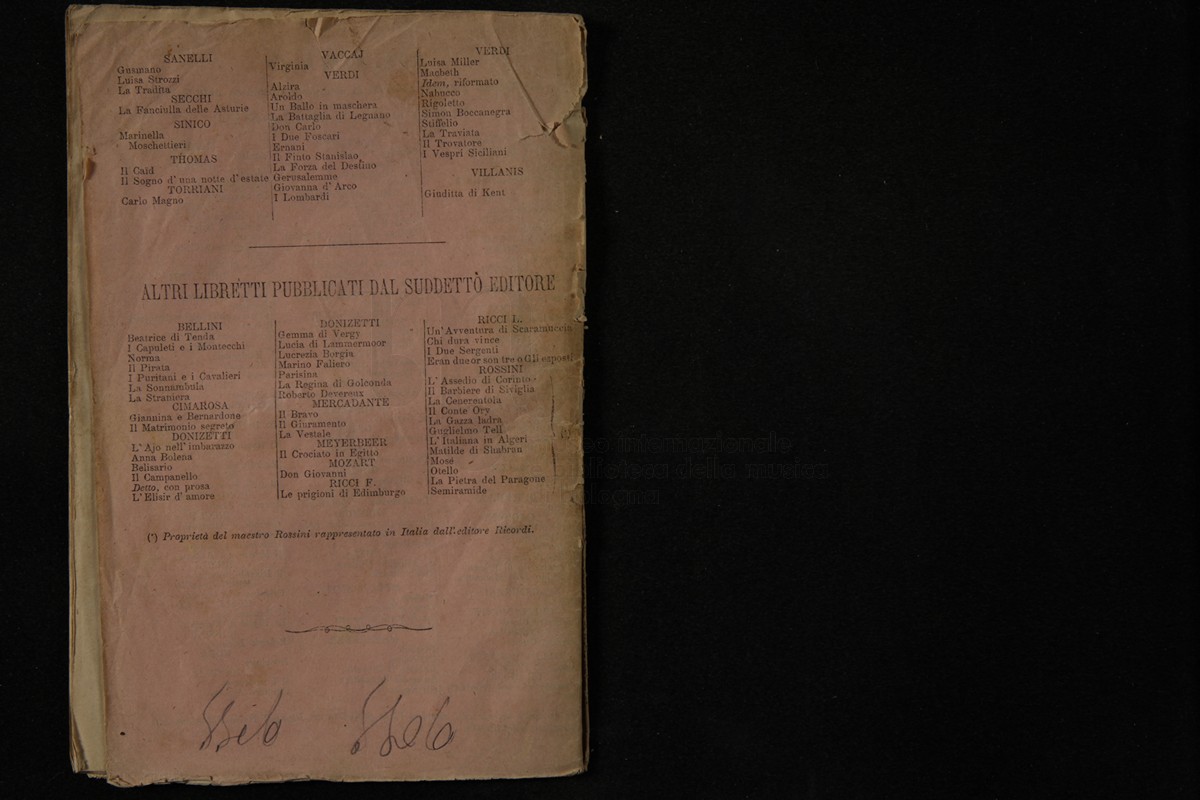 SANELLI
Gusmano
Luisa Strozzi
La Tradita
SECCHI
La Fanciulla delle Asturie
SINICO
Marinella
Moschettieri
THOMAS
Il Caid
Il Sogno d' una notte d' estate
TORRIANI
Carlo Magno
VACCAJ
Virginia
VERDI
Alzira
Aroldo
Un Ballo in maschera
La Battaglia di Legnano
Don Carlo
I Due Foscari
Ernani
Il Finto Stanislao
La Forza del Destino
Gerusalemme
Giovanna d' Arco
I Lombardi
VERDI
Luisa Miller
Macbeth
Idem, riformato
Nabucco
Rigoletto
Simon Boccanegra
Stiffelio
La Traviata
Il Trovatore
I Vespri Siciliani
VILLANIS
Giuditta di Kent
ALTRI LIBRETTI PUBBLICATI DAL SUDDETTO EDITORE
BELLINI
Beatrice di Tenda
I Capuleti e i Montecchi
Norma
Il Pirata
I Puritani e i Cavalieri
La Sonnambula
La Straniera
CIMAROSA
Giannina e Bernardone
Il Matrimonio segreto
DONIZETTI
L' Ajo nell' imbarazzo
Anna Bolena
Belisario
Il Campanello
Detto, con prosa
L' Elisir d' amore
DONIZETTI
Gemma di Vergy
Lucia di Lammermoor
Lucrezia Borgia
Marino Faliero
Parisina
La Regina di Golconda
Roberto Devereux
MERCADANTE
Il Bravo
Il Giuramento
La Vestale
MEYERBEER
Il Crociato in Egitto
MOZART
Don Giovanni
RICCI F.
Le prigioni di Edimburgo
RICCI L.
Un' Avventura di Scaramuccia
Chi dura vince
I Due Sergenti
Eran due or son tre o Gli esposti
ROSSINI
L' Assedio di Corinto
Il Barbiere di Siviglia
La Cenerentola
Il Conte Ory
La Gazza ladra
Guglielmo Tell
L' Italiana in Algeri
Matilde di Shabran
Mosè
Otello
La Pietra del Paragone
Semiramide
(*) Proprietà del maestro Rossini rappresentato in Italia dall' editore Ricordi.